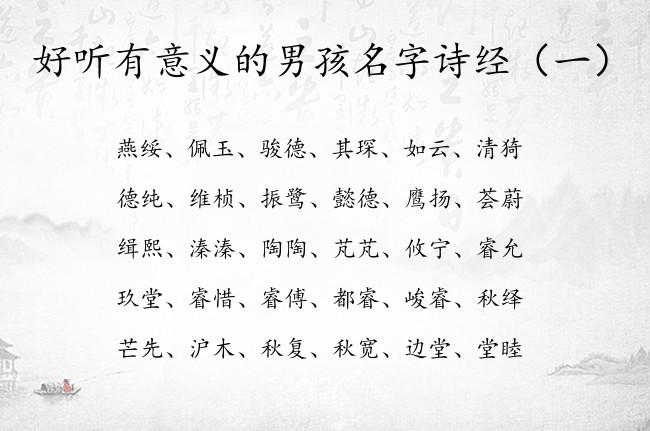 好听有意义的男孩名字诗经（一）
燕绥、佩玉、骏德、其琛、如云、清猗
德纯、维桢、振鹭、懿德、鹰扬、荟蔚
缉熙、溱溱、陶陶、芃芃、攸宁、睿允
玖堂、睿惜、睿傅、都睿、峻睿、秋绎
芒先、沪木、秋复、秋宽、边堂、堂睦